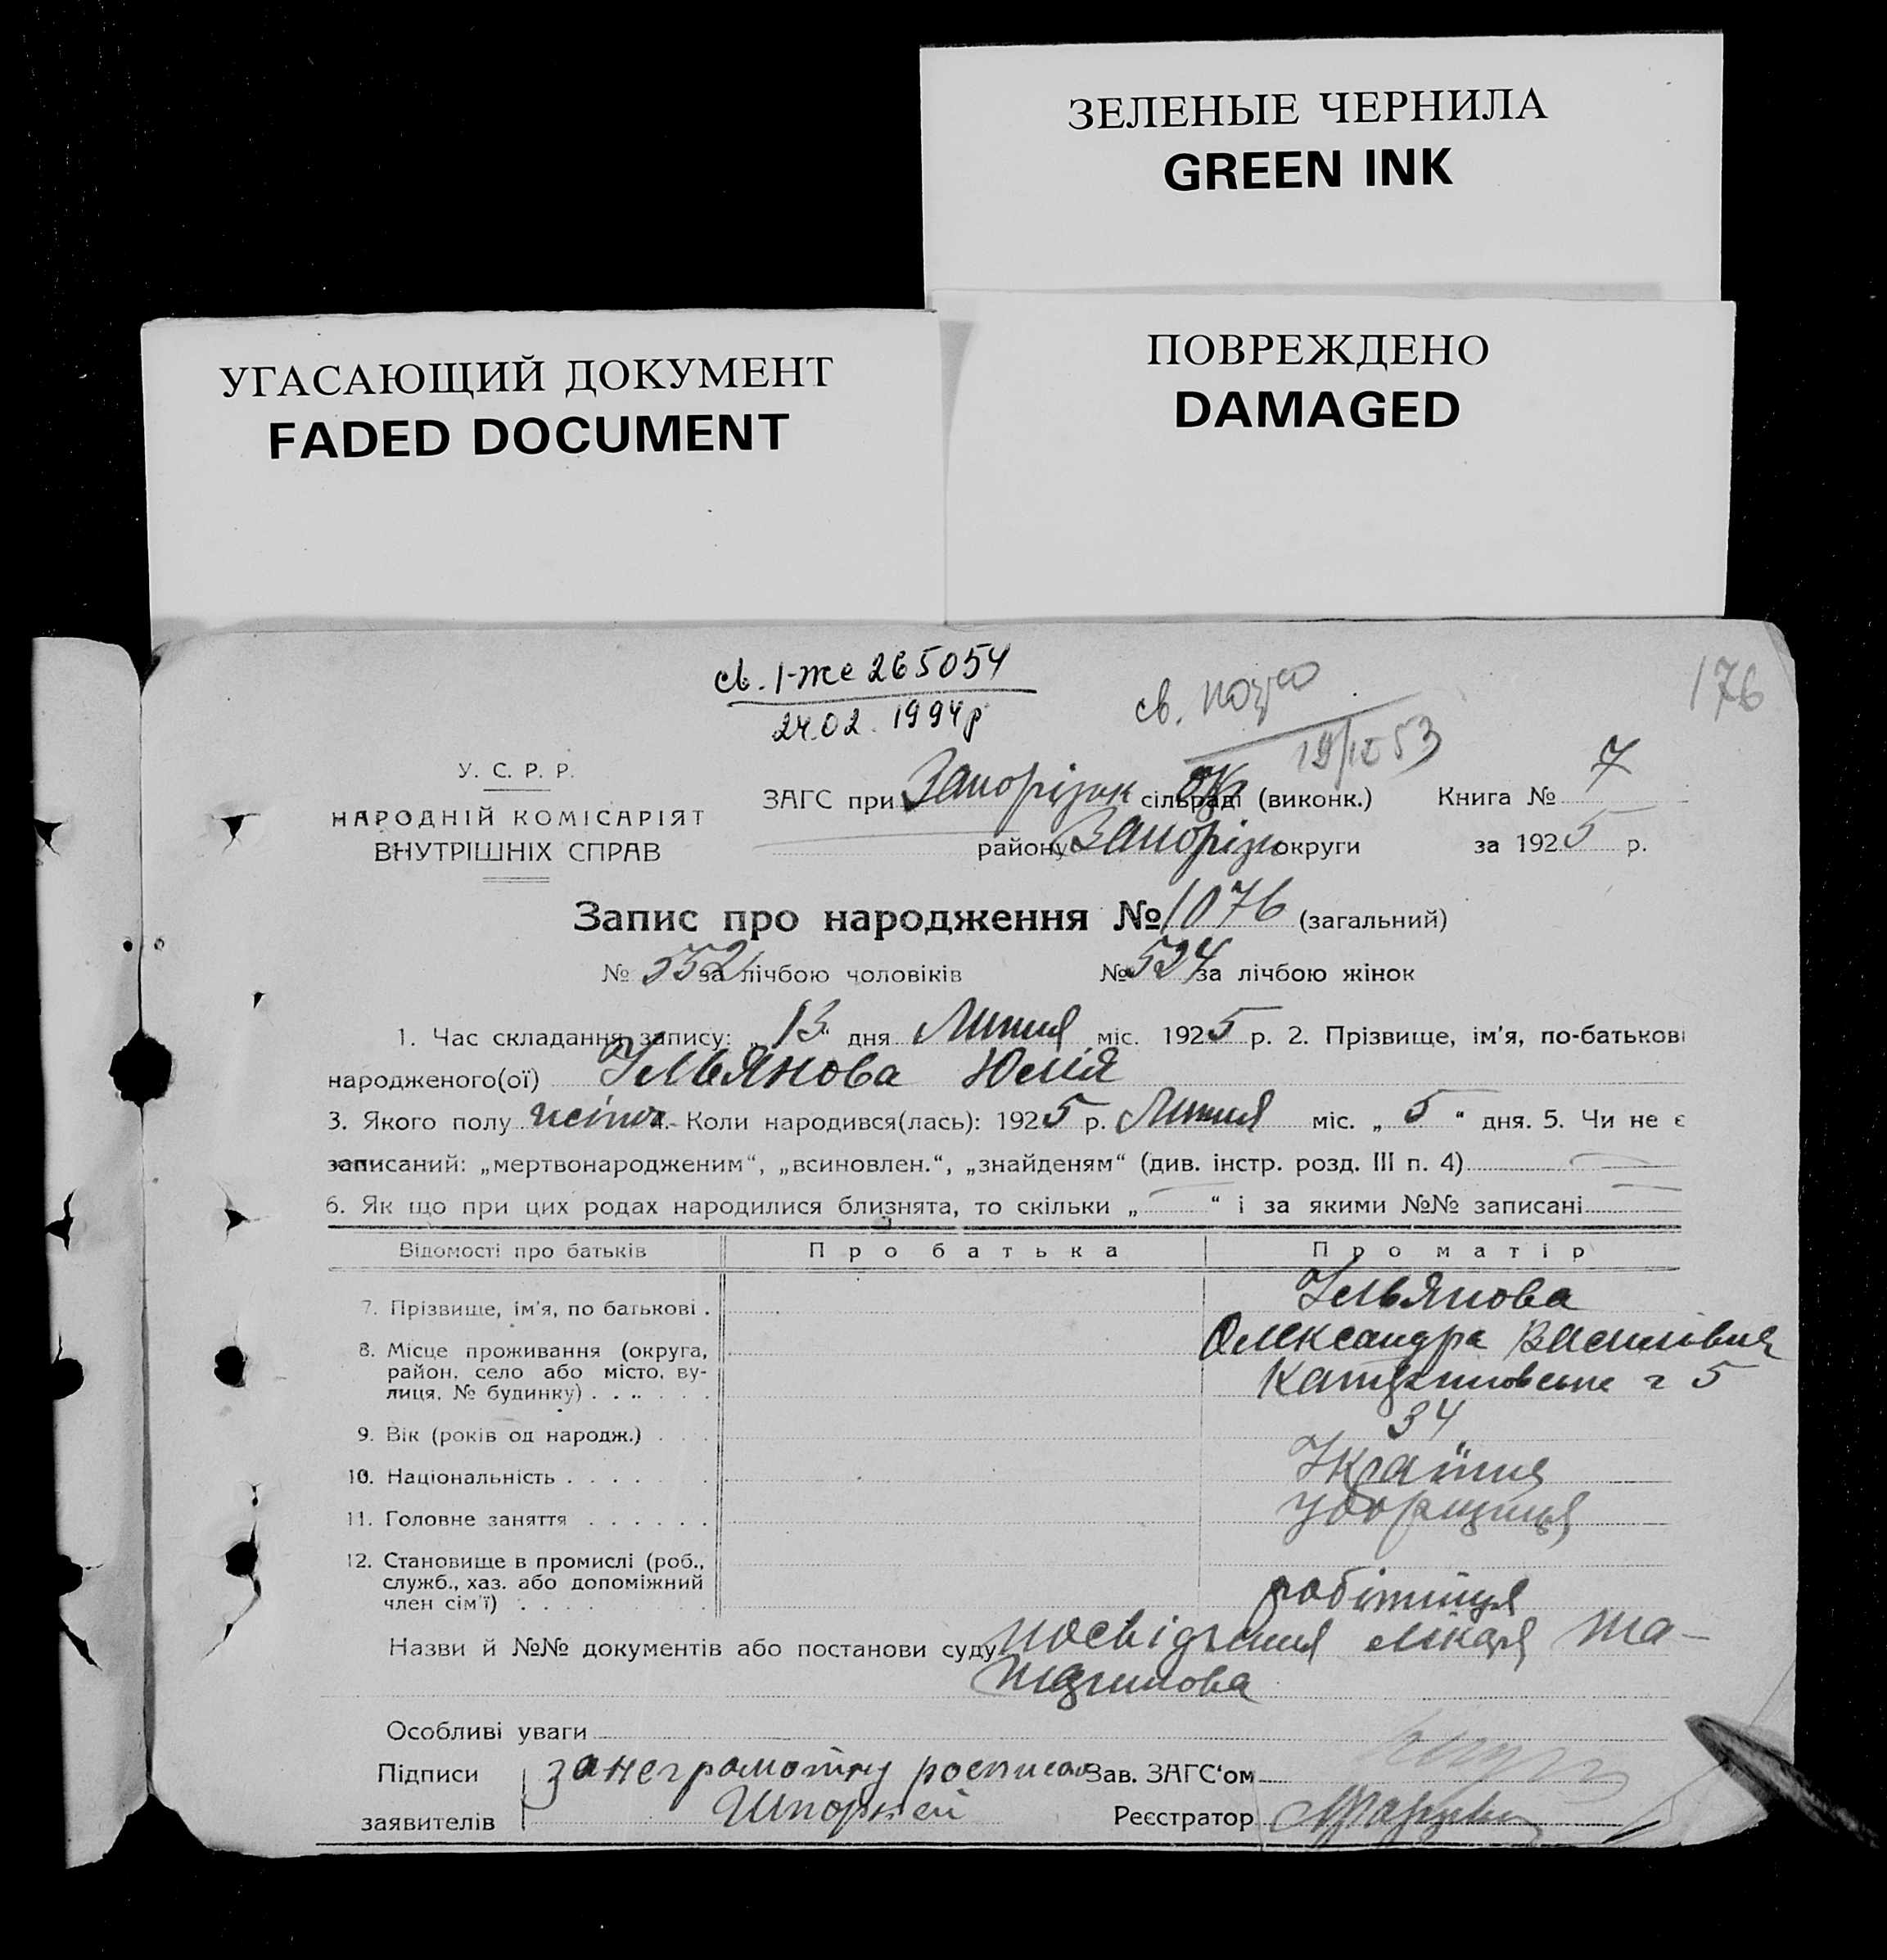 ЗЕЛЕНЫЕ ЧЕРНИЛА
GREEN INK
УГАСАЮЩИЙ ДОКУМЕНТ
FADED DOCUMENT
ПОВРЕЖДЕНО
DAMAGED
св. I-же 265054
24.02.1994р
св.
53
176
У. С. Р. Р.
НАРОДНІЙ КОМІСАРІЯТ
ВНУТРІШНІХ СПРАВ
ЗАГС при Запорізьк сільраді Ок (виконк.) Книга № 7
району Запорізьк округи за 1925 р.
Запис про народження № 1076 (загальний)
№ 552 за лічбою чоловіків № 524 за лічбою жінок
1. Час складання запису: „13“ дня Липня міс. 1925 р. 2. Прізвище, ім'я, по-батькові
народженого(ої) Ульянова Юлія
3. Якого полу жіноч. 4. Коли народився(лась): 1925 р. Липня міс. „5“ дня. 5. Чи не є
записаний: „мертвонародженим“, „всиновлен.“, „знайденям“ (див. інстр. розд. III п. 4)
6. Як що при цих родах народилися близнята, то скільки „ “ і за якими №№ записані
Відомості про батьків Про батька Про матір
7. Прізвище, ім'я, по батькові . Ульянова
Олександра Василівна
8. Місце проживання (округа,
район, село або місто, ву-
лиця, № будинку) . . . . 5
9. Вік (років од народж.) . . . 34
10. Національність . . . . Україн
11. Головне заняття . . . . . . уборщиця
12. Становище в промислі (роб.,
служб., хаз. або допоміжний
член сім'ї) . . . . робітниця
Назви й №№ документів або постанови суду посвідчення лікаря
Особливі уваги
Підписи за неграмотну росписав Зав. ЗАГС'ом
заявителів Реєстратор